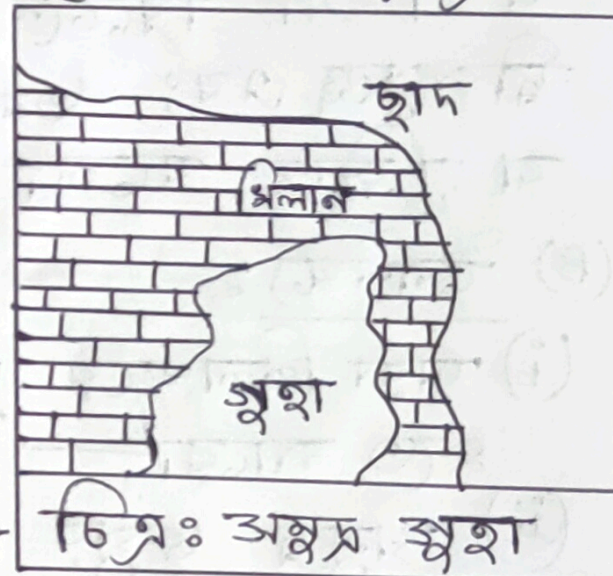 ছাদ
খিলান
গুহা
চিত্রঃ সমুদ্র গুহা